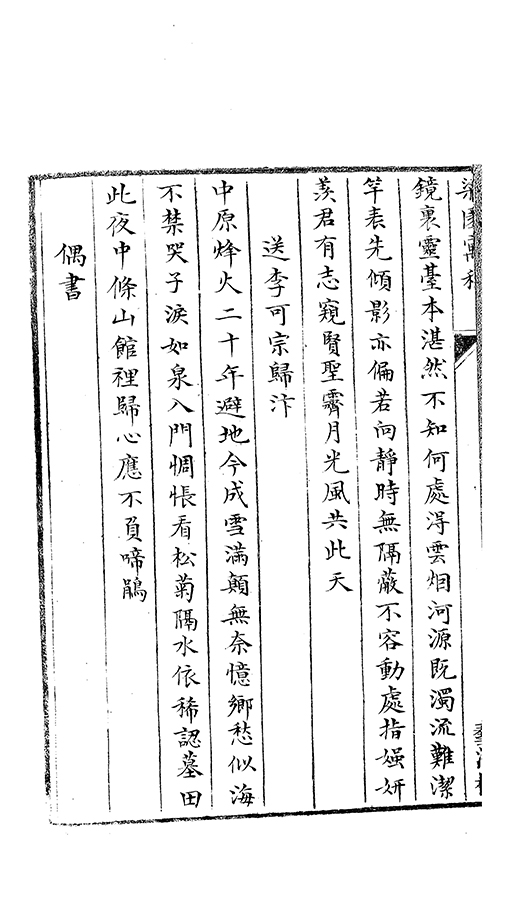 梁園寓稿
鏡裏靈臺本湛然不知何處淂雲烟河源既濁流難潔
竿表先傾影亦偏若向靜時無隔蔽不容動處指媸妍
羨君有志窺賢聖霽月光風共此天
送李可宗歸汴
中原烽火二十年避地今成雪滿顛無奈憶鄉愁似海
不禁哭子淚如泉入門惆悵看松菊隔水依稀認墓田
此夜中條山館裡歸心應不負啼鵑
偶書